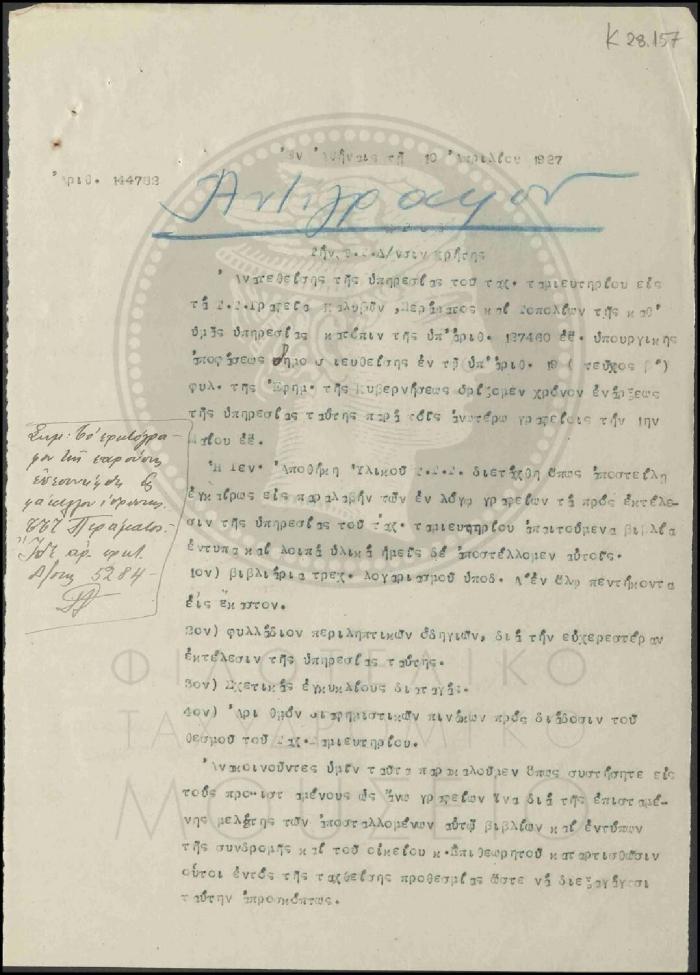 K 28.157
Ἐν Ἀθήναις τῇ 10 Ἀπριλίου 1927
Ἀριθ. 144732
Ἀντίγραφον
Τήν Τ.Τ.Δ/νσιν Κρήτης
Ἀνατεθείσης τῆς ὑπηρεσίας τοῦ ταχ. ταμιευτηρίου εἰς
τά Τ.Τ.Γραφεῖα Καλυβῶν, Περάματος καί Τοπολίων τῆς καθ'
ὑμᾶς ὑπηρεσίας κατόπιν τῆς ὑπ'ἀριθ. 137460 ἐ.ἔ. ὑπουργικῆς
ἀποφάσεως δημοσιευθείσης ἐν τῷ ὑπ'ἀριθ. 19 ( τεῦχος β')
φυλ. τῆς Ἐφημ. τῆς Κυβερνήσεως ὁρίζομεν χρόνον ἐνάρξεως
τῆς ὑπηρεσίας ταύτης παρά τοῖς ἀνωτέρω γραφείοις τήν 1ην
Μαΐου ἐ.ἔ.
Ἡ Γεν. Ἀποθήκη Ὑλικοῦ Τ.Τ.Τ. διετάχθη ὅπως ἀποστείλῃ
ἐγκαίρως εἰς παραλαβήν τῶν ἐν λόγῳ γραφείων τά πρός ἐκτέλε-
σιν τῆς ὑπηρεσίας τοῦ ταχ. ταμιευτηρίου ἀπαιτούμενα βιβλία
ἔντυπα καί λοιπά ὑλικά ἡμεῖς δέ ἀποστέλλομεν αὐτοῖς.
1ον) βιβλιάρια τρεχ. λογαριασμοῦ ὑποδ. Α'ἐν ὅλῳ πεντήκοντα
εἰς ἕκαστον.
2ον) φυλλάδιον περιληπτικῶν ὁδηγιῶν, διά τήν εὐχερεστέραν
ἐκτέλεσιν τῆς ὑπηρεσίας ταύτης.
3ον) Σχετικάς ἐγκυκλίους διαταγάς.
4ον) Ἀρι θμόν διαφημιστικῶν πινάκων πρός διάδοσιν τοῦ
θεσμοῦ τοῦ Ταχ. Ταμιευτηρίου.
Ἀνακοινοῦντες ὑμῖν ταῦτα παρακαλοῦμεν ὅπως συστήσητε εἰς
τούς προϊσταμένους ὡς ἄνω γραφείων ἵνα διά τῆς ἐπισταμέ-
νης μελέτης τῶν ἀποσταλλομένων αὐτῷ βιβλίων καί ἐντύπων
τῆς συνδρομῆς καί τοῦ οἰκείου κ.Ἐπιθεωρητοῦ καταρτισθῶσιν
οὗτοι ἐντός τῆς ταχθείσης προθεσμίας ὥστε νά διεξαγάγωσι
ταύτην ἀπροσκόπτως.
Σημ: Τό πρωτόγρα-
φον τῆς παρούσης
ΤΤΤ Περάματος.-
5284-
ΦΙΛΟΤΕΛΙΚΟ
ΤΑΧΥΔΡΟΜΙΚΟ
ΜΟΥΣΕΙΟ